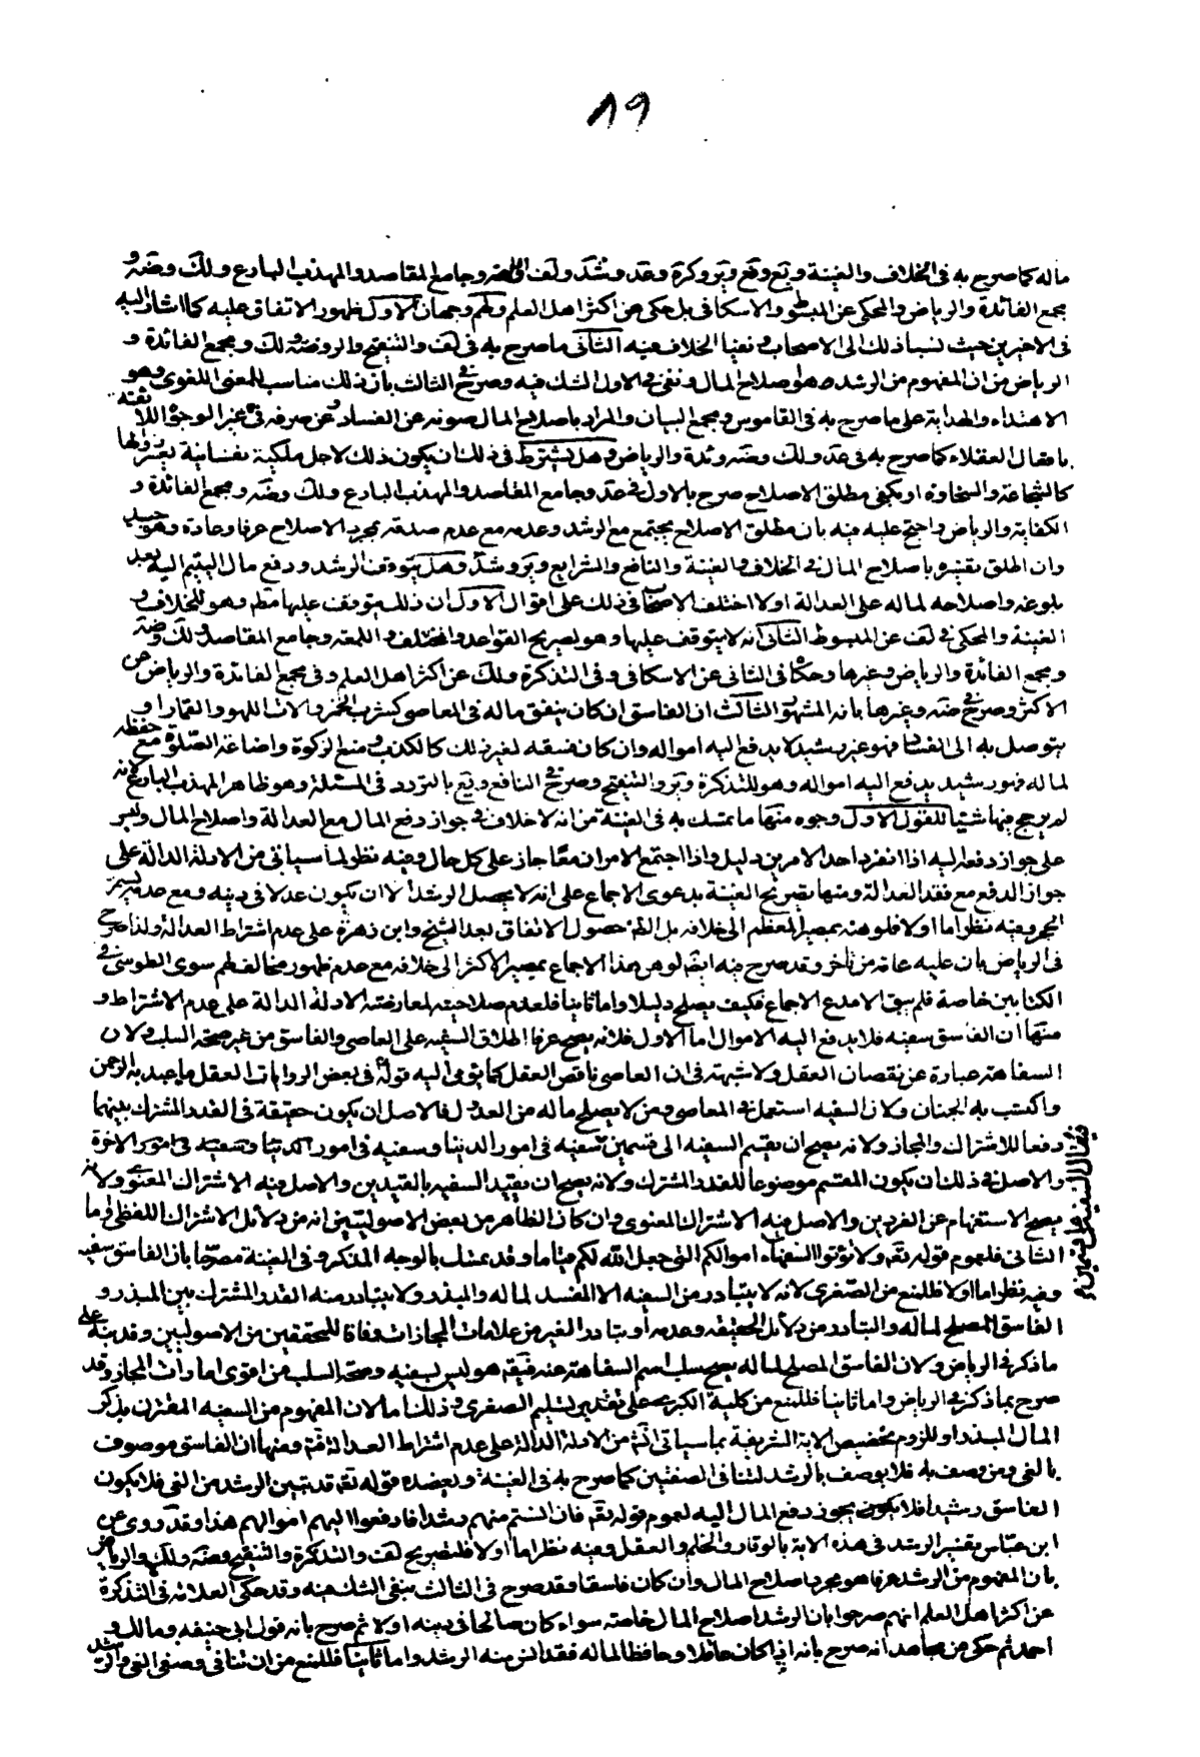 ٨٩
ماله كما صرح به فى الخلاف والغنية و يع وفع وير وكرة وعد وشد ولف وضه وجامع المقاصد والمهذب البارع ولك وضه و
مجمع الفائدة والرياض والمحكى عن المبسوط والاسكافى بل حكى عن اكثر اهل العلم ولهم وجهان الاول ظهور الاتفاق عليه كما اشار اليه
فى الاخيرين حيث نسبا ذلك الى الاصحاب ونفيا الخلاف عنه الثانى ما صرح به فى لف والتنقيح والروضة ولك ومجمع الفائدة و
الرياض من ان المفهوم من الرشد هو صلاح المال ونفى فى الاول الشك فيه وصرح فى الثالث بان ذلك مناسب للمعنى اللغوى وهو
الاهتداء والهداية على ما صرح به فى القاموس ومجمع البيان والمراد باصلاح المال صونه عن الفساد وعن صرفه فى غير الوجوه اللائقة
بافعال العقلاء كما صرح به فى عد ولك وضه وئدة والرياض وهل يشترط فى ذلك ان يكون ذلك لاجل ملكة نفسانية
كالشجاعة والسخاوة او يكفى مطلق الاصلاح صرح بالاول فى عد وجامع المقاصد والمهذب البارع ولك وضه ومجمع الفائدة و
الكفاية والرياض واحتج عليه فيه بان مطلق الاصلاح يجتمع مع الرشد وعدمه مع عدم صدقه بمجرد الاصلاح عرفا وعادة وهو جيد
وان اطلق تفسيره باصلاح المال فى الخلاف والغنية والنافع والشرايع وير وشد وهل يتوقف الرشد ودفع مال اليتيم اليه بعد
بلوغه واصلاحه لماله على العدالة او لا اختلف الاصحاب فى ذلك على اقوال الاول ان ذلك يتوقف عليها مطم وهو للخلاف و
الغنية والمحكى فى لف عن المبسوط الثانى انه لا يتوقف عليها وهو لصريح القواعد والمختلف واللمعة وجامع المقاصد ولك وضه
ومجمع الفائدة والرياض وغيرها وحكاه فى الثانى عن الاسكافى وفى التذكرة ولك عن اكثر اهل العلم وفى مجمع الفائدة والرياض عن
الاكثر وصرح فى ضه وغيرها بانه المشهور الثالث ان الفاسق ان كان ينفق ماله فى المعاصى كشرب الخمر والات اللهو والقمار او
يتوصل به الى الفساد فهو غير رشيد لا يدفع اليه امواله وان كان فسقه لغير ذلك كالكذب ومنع الزكوة واضاعة الصلوة مع حفظه
لماله فهو رشيد يدفع اليه امواله وهو للتذكرة وير والتنقيح وصرح فى النافع و يع بالتردد فى المسئلة وهو ظاهر المهذب البارع لانه
لم يرجح فيها شيئا للقول الاول وجوه منها ما تمسك به فى الغنية من انه لا خلاف فى جواز دفع المال مع العدالة واصلاح المال وليس
على جواز دفعه اليه اذا انفرد احد الامرين دليل واذا اجتمع الامران معا جاز على كل حال وفيه نظر لما سياتى من الادلة الدالة على
جواز الدفع مع فقد العدالة ومنها تصريح الغنية بدعوى الاجماع على انه لا يحصل الرشد الا ان يكون عدلا فى دينه ومع عدمه يستمر
الحجر وفيه نظر اما اولا فلوهنه بمصير المعظم الى خلافه بل الظ حصول الاتفاق بعد الشيخ وابن زهرة على عدم اشتراط العدالة ولذا صرح
فى الرياض بان عليه عامة من تاخر وقد صرح فيه ايضا لوهن هذا الاجماع بمصير الاكثر الى خلافه مع عدم ظهور مخالف لهم سوى الطوسى فى
الكتابين خاصة فلم يبق الا مدع الاجماع فكيف يصلح دليلا واما ثانيا فلعدم صلاحيته لمعارضته الادلة الدالة على عدم الاشتراط و
منها ان الفاسق سفيه فلا يدفع اليه الاموال اما الاول فلانه يصح عرفا اطلاق السفيه على العاصى والفاسق من غير صحة السلب ولان
السفاهة عبارة عن نقصان العقل ولا شبهة فى ان العاصى ناقص العقل كما يومى اليه قوله فى بعض الروايات العقل ما عبد به الرحمن
واكتسب به الجنان ولان السفيه استعمل فى المعاصى ومن لا يصلح ماله من العدول فالاصل ان يكون حقيقة فى القدر المشترك بينهما
دفعا للاشتراك والمجاز ولانه يصح ان يقسم السفيه الى قسمين سفيه فى امور الدنيا وسفيه فى امور الاخرة
والاصل فى ذلك ان يكون المقسم موضوعا للقدر المشترك ولانه يصح ان يقيد السفيه بالقيدين والاصل فيه الاشتراك المعنوى ولانه
يصح الاستفهام عن الفردين والاصل فيه الاشتراك المعنوى وان كان الظاهر من بعض الاصوليين انه من دلائل الاشتراك اللفظى واما
الثانى فلعموم قوله تعالى ولا تؤتوا السفهاء اموالكم التى جعل الله لكم قياما وقد تمسك بالوجه المذكور فى الغنية مصرحا بان الفاسق سفيه
وفيه نظر اما اولا فللمنع من الصغرى لانه لا يتبادر من السفيه الا المفسد لماله والمبذر ولا يتبادر منه القدر المشترك بين المبذر و
الفاسق المصلح لماله والتبادر من دلائل الحقيقة وعدمه او تبادر الغير من علامات المجازات وفاقا للمحققين من الاصوليين وقد نبه على
ما ذكر فى الرياض ولان الفاسق المصلح لماله يصح سلب اسم السفاهة عنه فيقم هو ليس بسفيه وصحة السلب من اقوى امارات المجاز وقد
صرح بما ذكر فى الرياض واما ثانيا فللمنع من كلية الكبرى على تقدير تسليم الصغرى وذلك اما لان المفهوم من السفيه المقترن بذكر
المال المبذر او للزوم تخصيص الاية الشريفة بما سياتى اليه من الادلة الدالة على عدم اشتراط العدالة فتم ومنها ان الفاسق موصوف
بالغى ومن وصف به فلا يوصف بالرشد لتنافى الصفتين كما صرح به فى الغنية ويعضده قوله تعالى قد تبين الرشد من الغى فلا يكون
الفاسق رشيدا فلا يجوز دفع المال اليه لعموم قوله تعالى فان انستم منهم رشدا فادفعوا اليهم اموالهم هذا وقد روى عن
ابن عباس تفسير الرشد فى هذه الاية بالوقار والحلم والعقل وفيه نظر اما اولا فلتصريح لف والتذكرة والتنقيح وضه ولك والرياض
بان المفهوم من الرشد عرفا هو مجرد اصلاح المال وان كان فاسقا وقد صرح فى الثالث بنفى الشك عنه وقد حكى العلامة فى التذكرة
عن اكثر اهل العلم انهم صرحوا بان الرشد اصلاح المال خاصة سواء كان صالحا فى دينه او لا ثم صرح بانه قول ابى حنيفه ومالك و
احمد ثم حكى عن مجاهد انه صرح بانه اذا كان عاقلا وحافظا لماله فقد انس منه الرشد واما ثانيا فللمنع من ان تنافى وصفى الغى والرشد